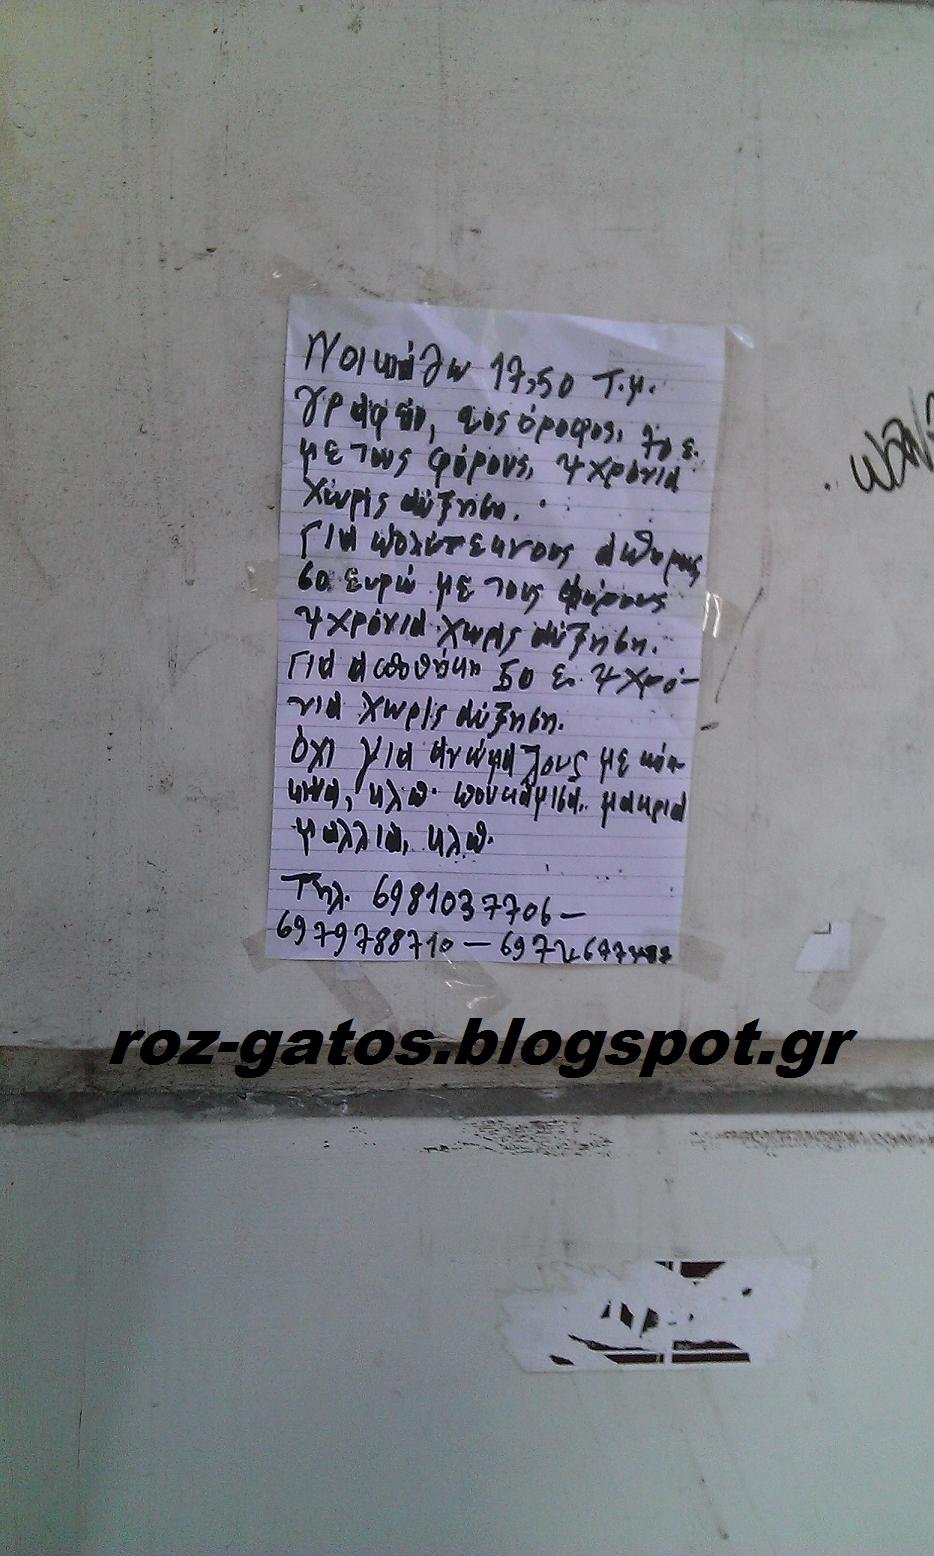 Νοικιάζω 17,50 τ.μ.
γραφείο, 4ος όροφος, 70 ε.
με τους φόρους, 4 χρόνια
χωρίς αύξηση.
Για πολύτεκνους άπορους
60 ευρώ με τους φόρους
4 χρόνια χωρίς αύξηση.
Για αποθήκη 50 ε. 4 χρό-
νια χωρίς αύξηση.
όχι για ανώμαλους με κόκ-
κινα, κλπ. πουκάμισα. μακριά
μαλλιά, κλπ.
Τηλ. 6981037706 –
6979788710 –
roz-gatos.blogspot.gr